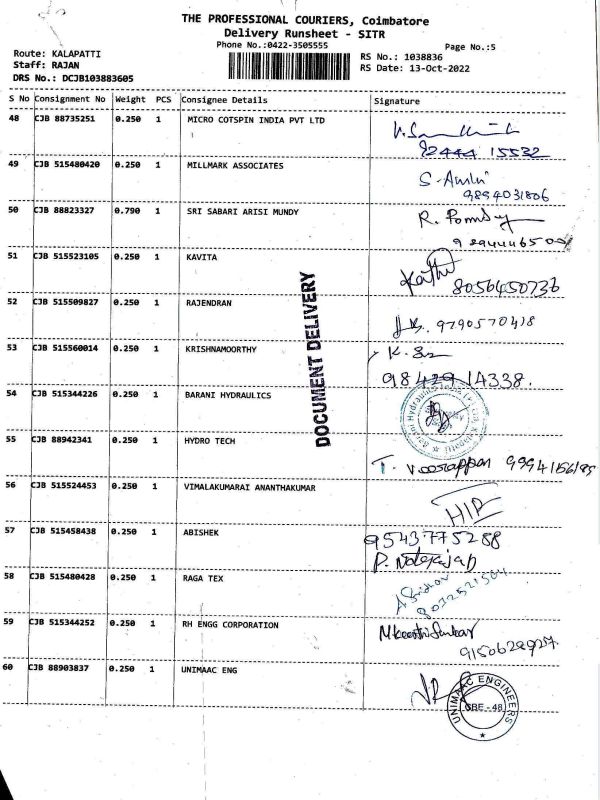 THE PROFESSIONAL COURIERS, Coimbatore
Delivery Runsheet - SITR
Phone No.:0422-3505555
Page No.:5
Route: KALAPATTI
Staff: RAJAN
DRS No.: DCJB103883605
RS No.: 1038836
RS Date: 13-Oct-2022
S No Consignment No Weight PCS Consignee Details Signature
48 CJB 88735251 0.250 1 MICRO COTSPIN INDIA PVT LTD
82444 15532
49 CJB 515480420 0.250 1 MILLMARK ASSOCIATES
9894031806
50 CJB 88823327 0.790 1 SRI SABARI ARISI MUNDY
51 CJB 515523105 0.250 1 KAVITA
Kathi
8056450736
52 CJB 515509827 0.250 1 RAJENDRAN
9790570418
53 CJB 515560014 0.250 1 KRISHNAMOORTHY
98429 14338.
54 CJB 515344226 0.250 1 BARANI HYDRAULICS
55 CJB 88942341 0.250 1 HYDRO TECH
T. Veerappan
56 CJB 515524453 0.250 1 VIMALAKUMARAI ANANTHAKUMAR
57 CJB 515458438 0.250 1 ABISHEK
9543775288
P. Natarajan
58 CJB 515480428 0.250 1 RAGA TEX
59 CJB 515344252 0.250 1 RH ENGG CORPORATION
60 CJB 88903837 0.250 1 UNIMAAC ENG
UNIMAAC ENGINEERS
CBE - 48
DOCUMENT DELIVERY